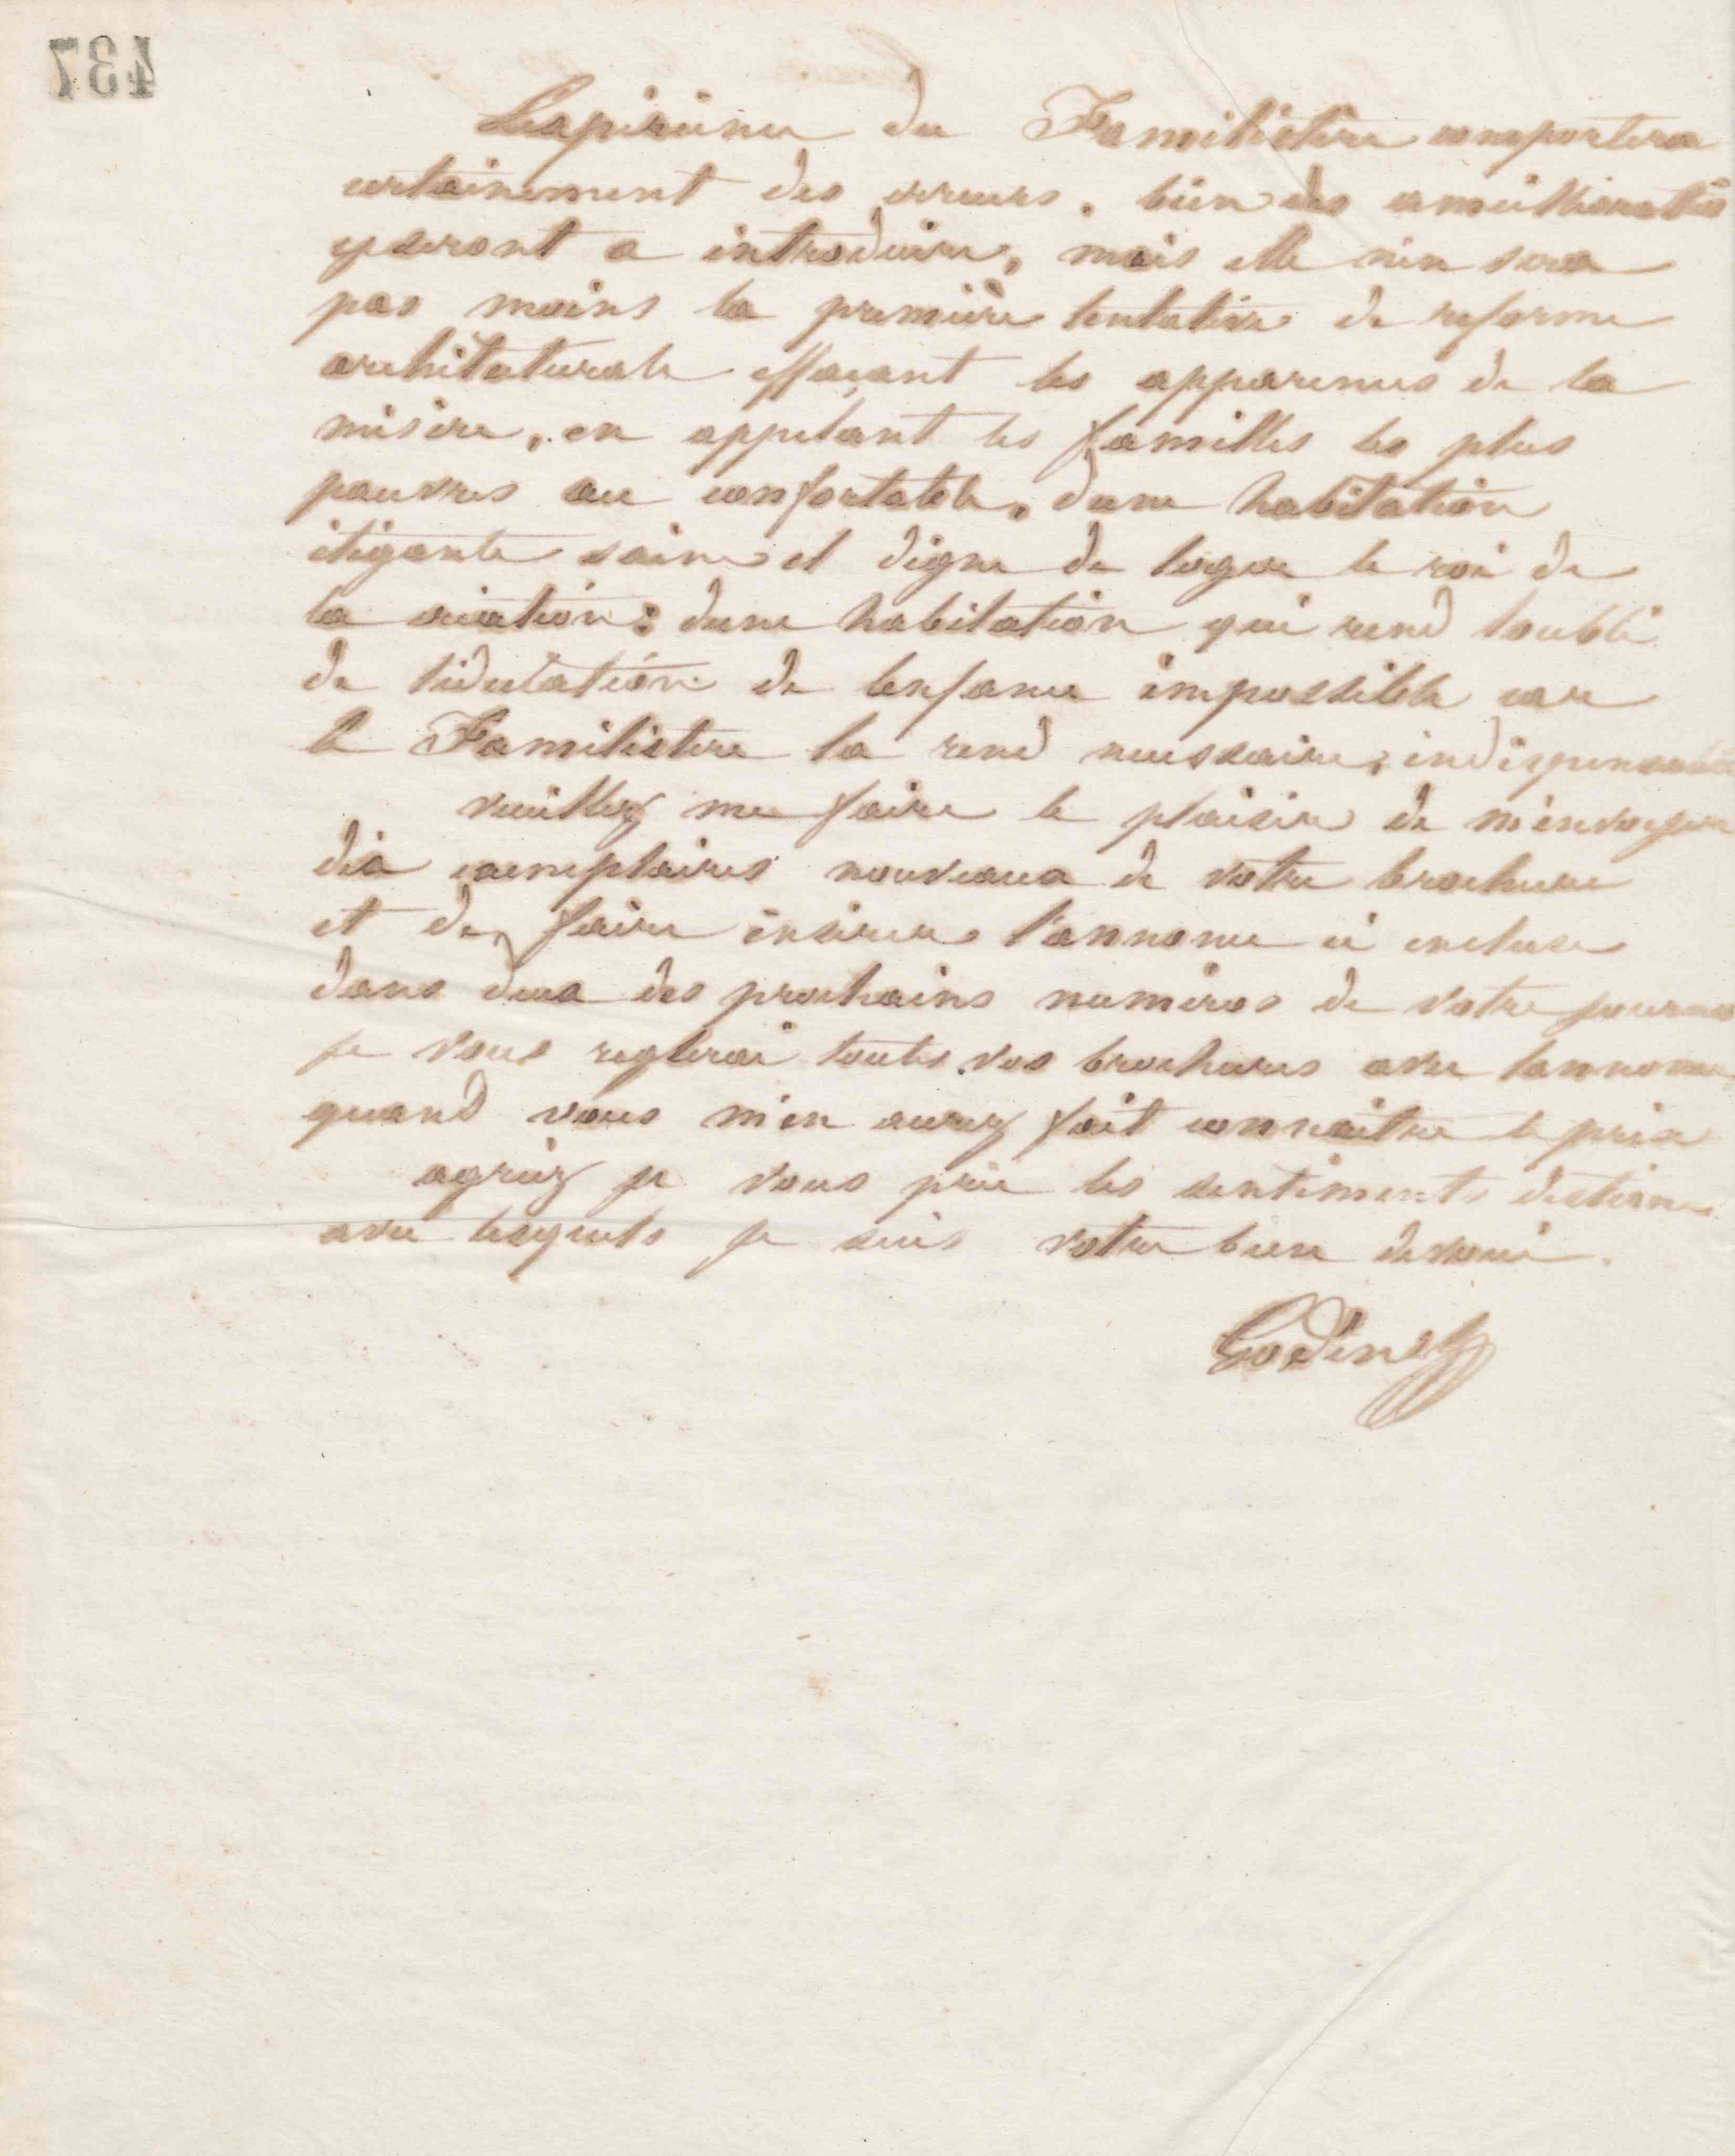 437
Lexpérience du Familistère comportera
certainement des erreurs. bien des ameilliorations
y seront a introduire, mais elle n'en sera
pas moins la première tentative de reforme
architecturale effaçant les apparences de la
misère, en appelant les familles les plus
pauvres au confortable, dune habitation
élégante saine et digne de loger le roi de
la création: dune habitation qui rend loubli
de lèducation de lenfance impossible car
le Familistere la rend necessaire, indispensable
veuillez me faire le plaisir de m'envoyer
dix exemplaires nouveaux de votre brochure
et de faire insérer l'annonce ci incluse
dans deux des prochains numéros de votre journal
je vous reglerai toutes vos brochures avec lannonce
quand vous m'en aurez fait connaitre le prix
agréez je vous prie les sentiments
avec lesquels je suis votre bien dévoué.
Godin